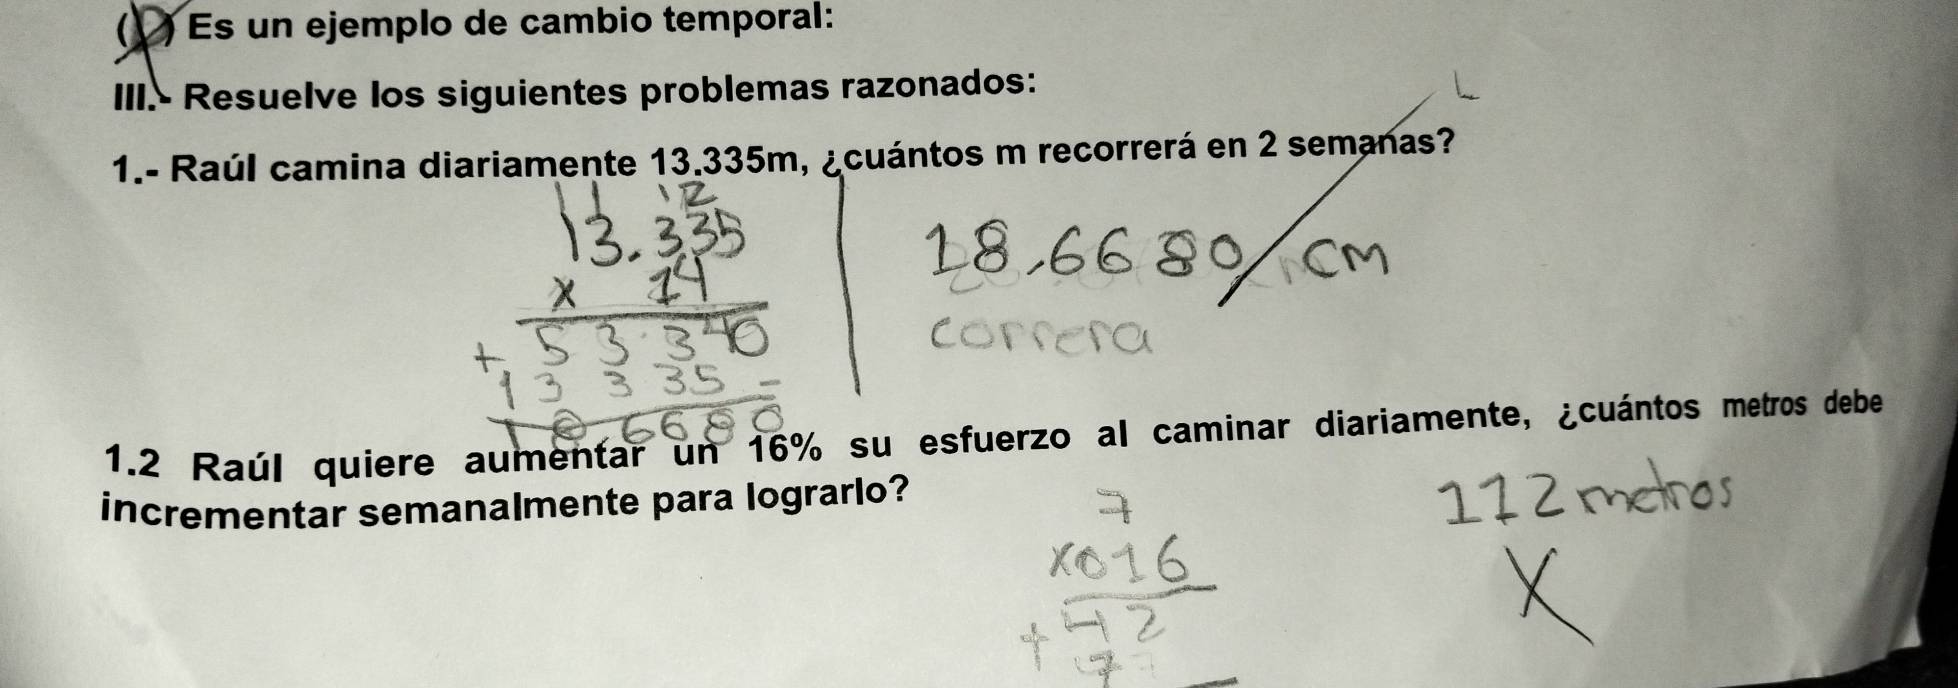 ( ) Es un ejemplo de cambio temporal:
III.- Resuelve los siguientes problemas razonados:
1.- Raúl camina diariamente 13.335m, ¿cuántos m recorrerá en 2 semanas?
11 12
13.335
x 14
53340
+ 13335
18,6680
18,6680 cm
correra
1.2 Raúl quiere aumentar un 16% su esfuerzo al caminar diariamente, ¿cuántos metros debe
incrementar semanalmente para lograrlo?
7
x016
+ 42
7
112 metros
X